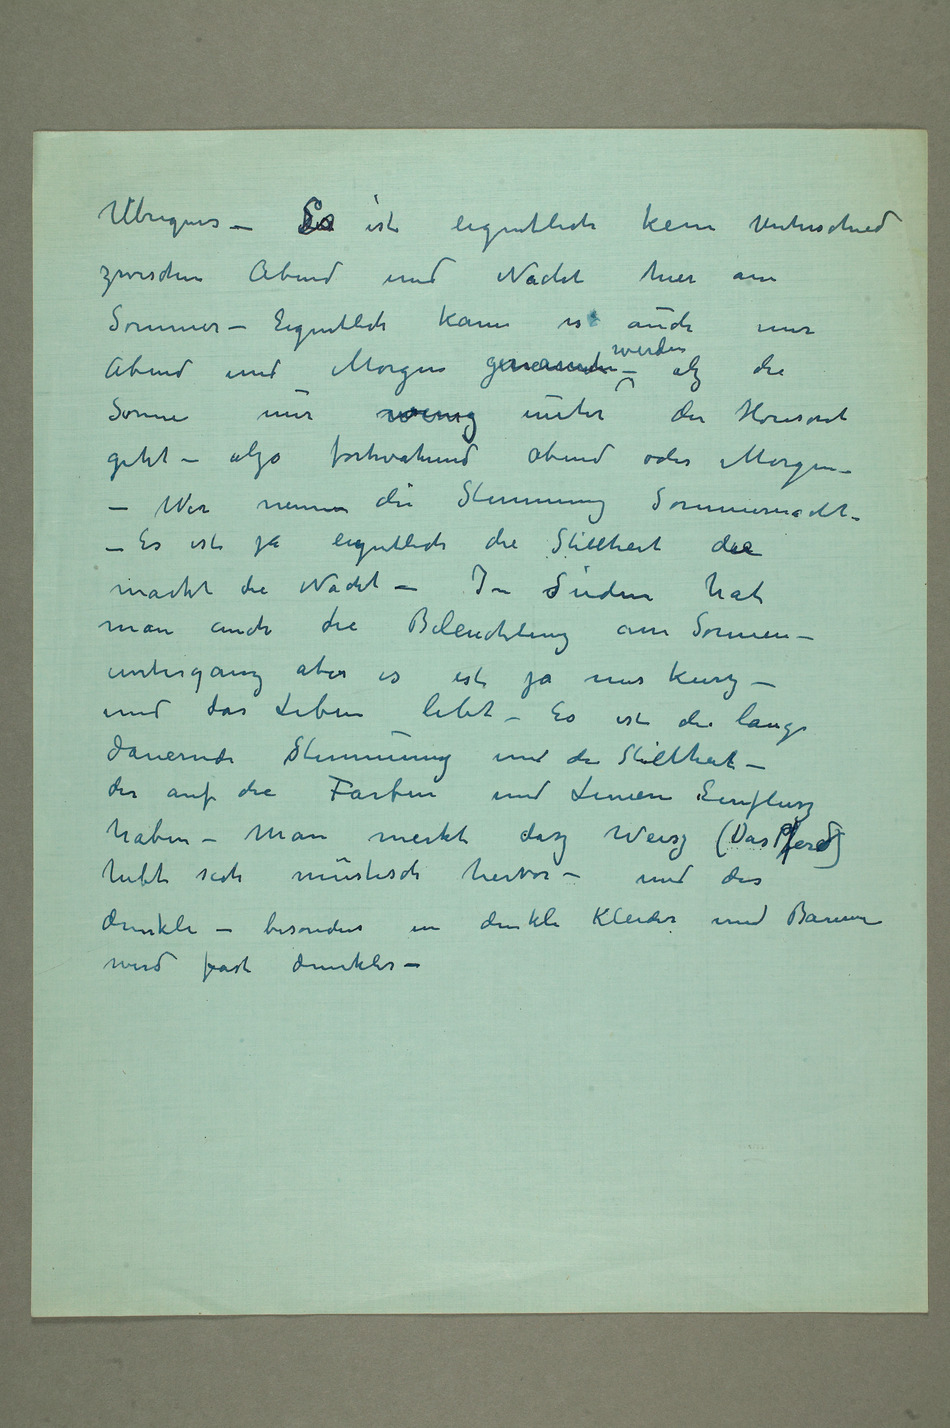 Übrigens – Es ist eigentlich kein Unterschied
zwischen Abend und Nacht hier am
Sommer – Eigentlich kann es auch nur
Abend und Morgen genannt werden – alz die
Sonne nur wenig unter der Horisont
geht – alzo fortwahrend abend oder Morgen –
– Wir nennen die Stimmung Sommernacht –
– Es ist ja eigentlich die Stillheit die
macht die Nacht – In Süden hat
man auch die Beleuchtung am Sonnen–
untergang aber es ist ja nur kurz –
und das Leben lebt – Es ist die lange
dauernde Stimmung und die Stillheit –
der auf die Farben und Linien Einflusz
haben – Man merkt dasz Weisz (Das Pferd)
hebt sich müstisch hervor – und das
dunkle – besonders in dunkle Kleider und Baume
wird fast dunkler –